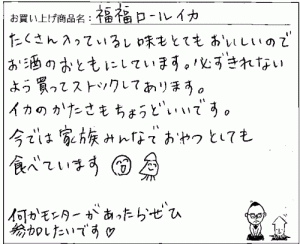 お買い上げ商品名：福福ロールイカ
たくさん入っているし味もとてもおいしいので
お酒のおともにしています。必ずきれない
よう買ってストックしてあります。
イカのかたさもちょうどいいです。
今では家族みんなでおやつとしても
食べています
何かモニターがあったらぜひ
参加したいです♡